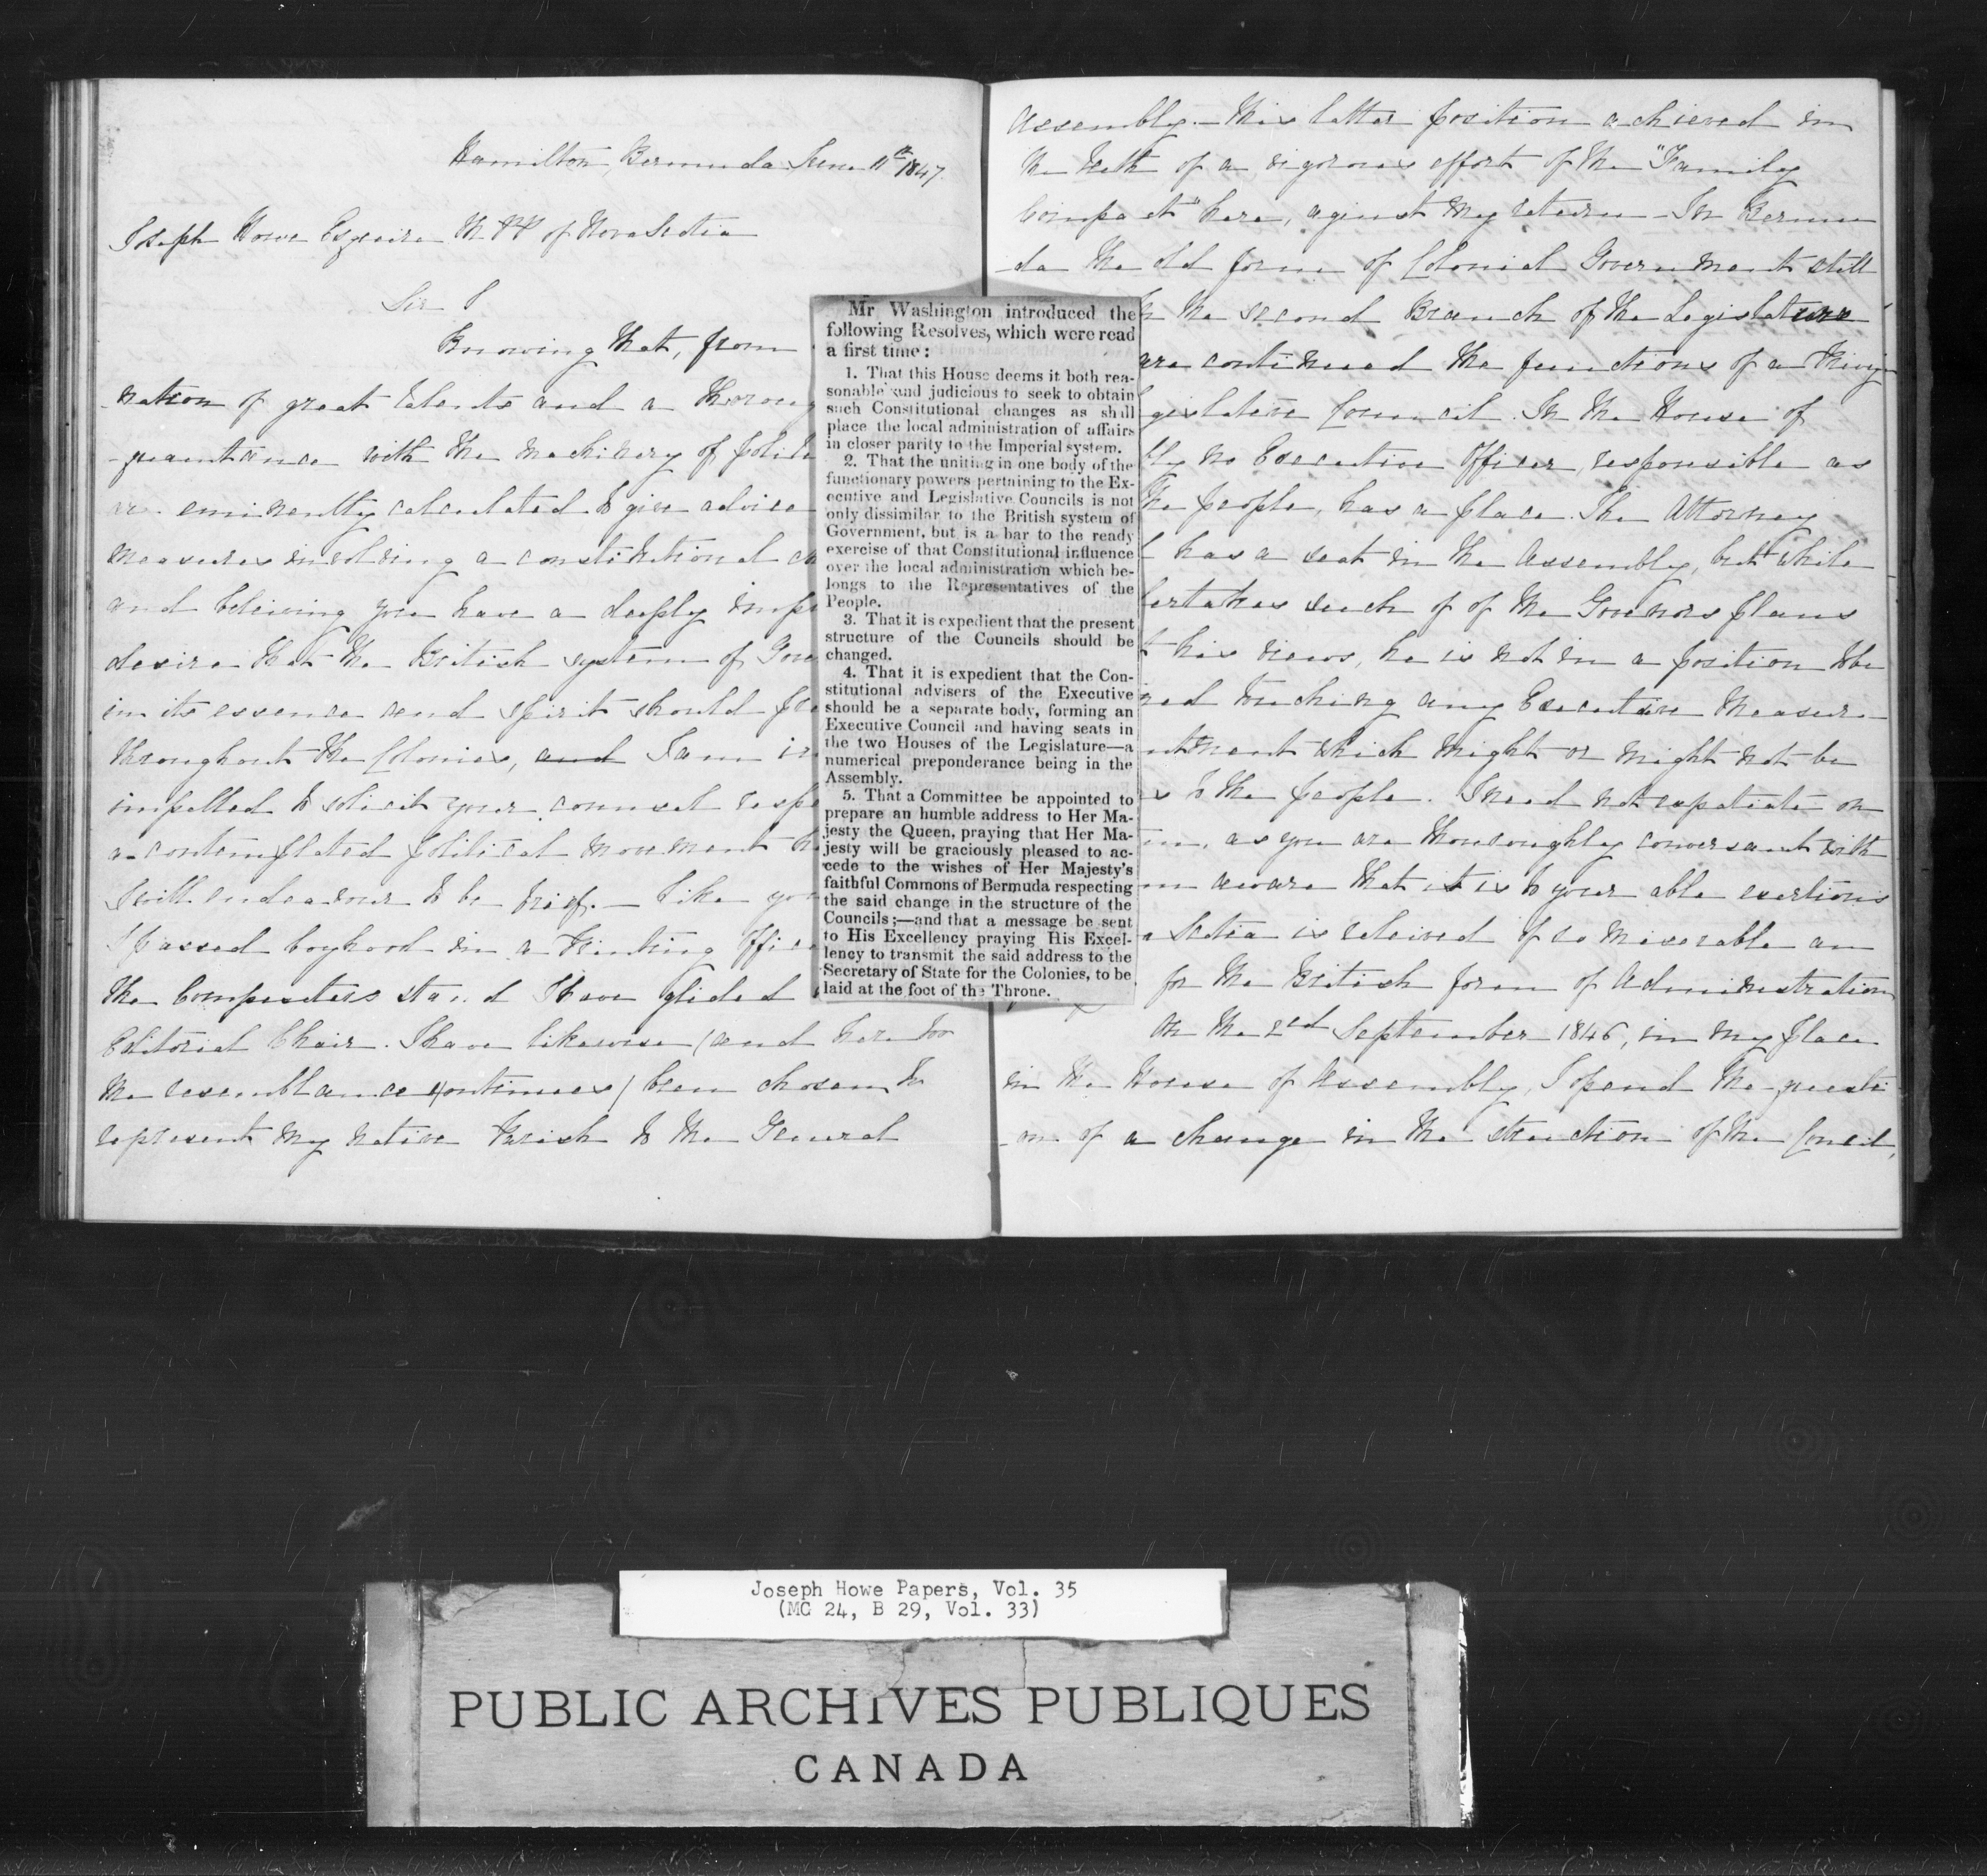 Hamilton, Bermuda June 11th 1847.
Joseph Howe Esquire M.PP of Nova Scotia
Sir
Knowing that, from
nation of great talents and a thoroug
-quaintance with the machinery of polit
are eminently calculated to give advice
measures involving a constitutional ch
and believing you have a deeply imp
desire that the British system of Gov
in its essence and spirit should
throughout the Colonies, and I am
impelled to solicit your counsel resp
a contemplated political movement
I will endeavour to be brief. — Like yo
I passed boyhood in a Printing Offic
the Compositers stand I have glided
Editorial Chair. I have likewise (and here too
the resemblance continues) been chosen to
represent my native Parish to the General
Mr Washington introduced the
following Resolves, which were read
a first time:
1. That this House deems it both rea-
sonable and judicious to seek to obtain
such Constitutional changes as shall
place the local administration of affairs
in closer parity to the Imperial system.
2. That the uniting in one body of the
functionary powers pertaining to the Ex-
ecutive and Legislative Councils is not
only dissimilar to the British system of
Government, but is a bar to the ready
exercise of that Constitutional influence
over the local administration which be-
longs to the Representatives of the
People.
3. That it is expedient that the present
structure of the Councils should be
changed.
4. That it is expedient that the Con-
stitutional advisers of the Executive
should be a separate body, forming an
Executive Council and having seats in
the two Houses of the Legislature—a
numerical preponderance being in the
Assembly.
5. That a Committee be appointed to
prepare an humble address to Her Ma-
jesty the Queen, praying that Her Ma-
jesty will be graciously pleased to ac-
cede to the wishes of Her Majesty's
faithful Commons of Bermuda respecting
the said change in the structure of the
Councils;—and that a message be sent
to His Excellency praying His Excel-
lency to transmit the said address to the
Secretary of State for the Colonies, to be
laid at the foot of the Throne.
Assembly. — This latter position achieved in
the teeth of a vigorous effort of the "Family
Compact" here, against my return — In Bermu
-da the old form of Colonial Government still
the second Branch of the Legislature
are continued the functions of a Privy
gislative Council. In the House of
bly no Executive Officer, responsible as
the people, has a place. The Attorney
has a seat in the Assembly, but while
ertakes such of of the Govenors plans
his views, he is not in a position to be
ned touching any Executive measure
ntment which might or might not be
s to the people. I need not expatiate on
m, as you are thouroughly conversant with
m aware that it is to your able exertions
a Scotia is releived of so miserable an
for the British form of Administration
On the 2nd September 1846, in my place
in the House of Assembly, I opend the questi
-on of a change in the struction of the Concil,
Joseph Howe Papers, Vol. 35
(MG 24, B 29, Vol. 33)
PUBLIC ARCHIVES PUBLIQUES
CANADA